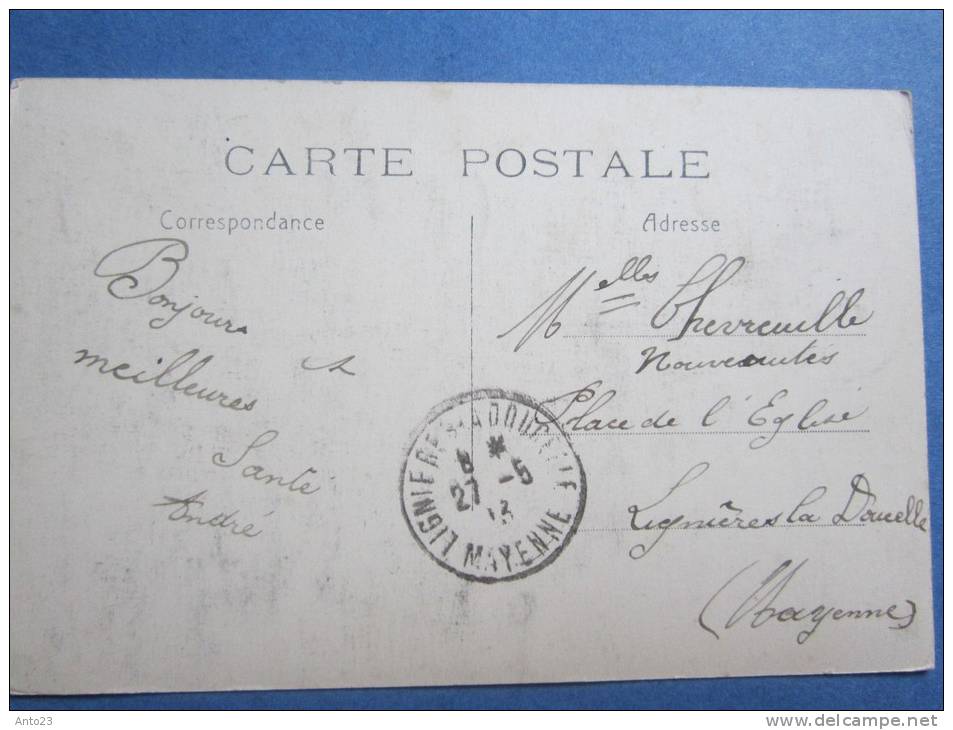 CARTE POSTALE
Correspondance
Bonjour
meilleures
Santé
André
Adresse
Melles Chevreuille
Nouveautés
Place de l'Eglise
Lignières la Doucelle
(Mayenne)
LIGNIERES-LA-DOUCELLE
27 - 5
MAYENNE
Anto23
www.delcampe.net